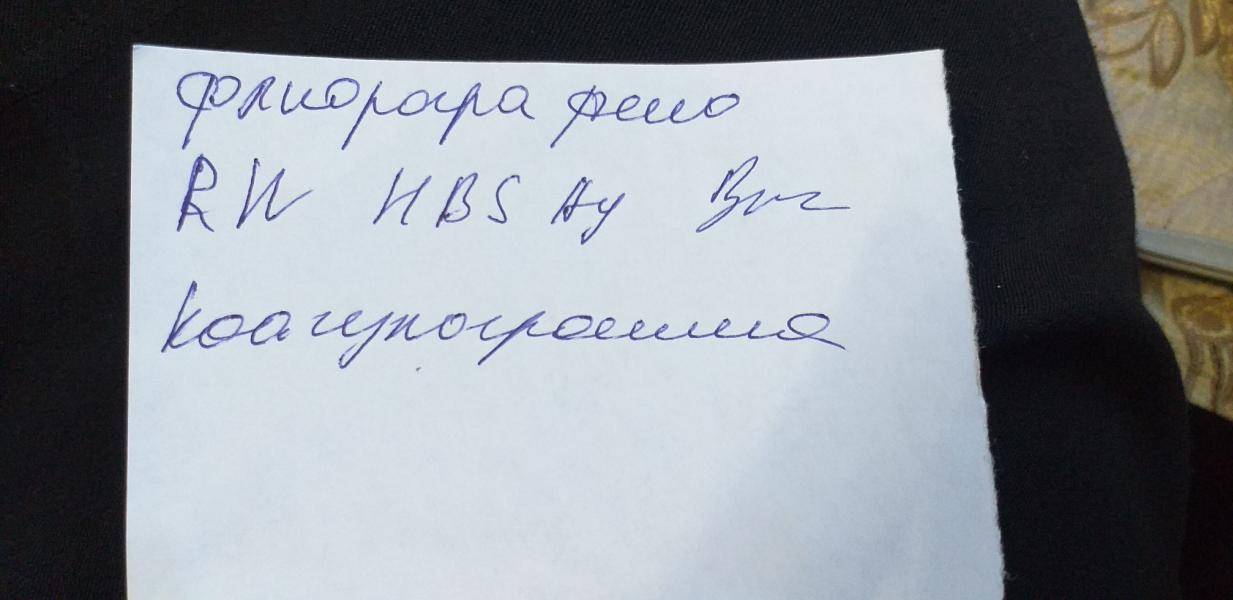 флюорогра фию
RW HBS Ag ВИЧ
коагулограмма